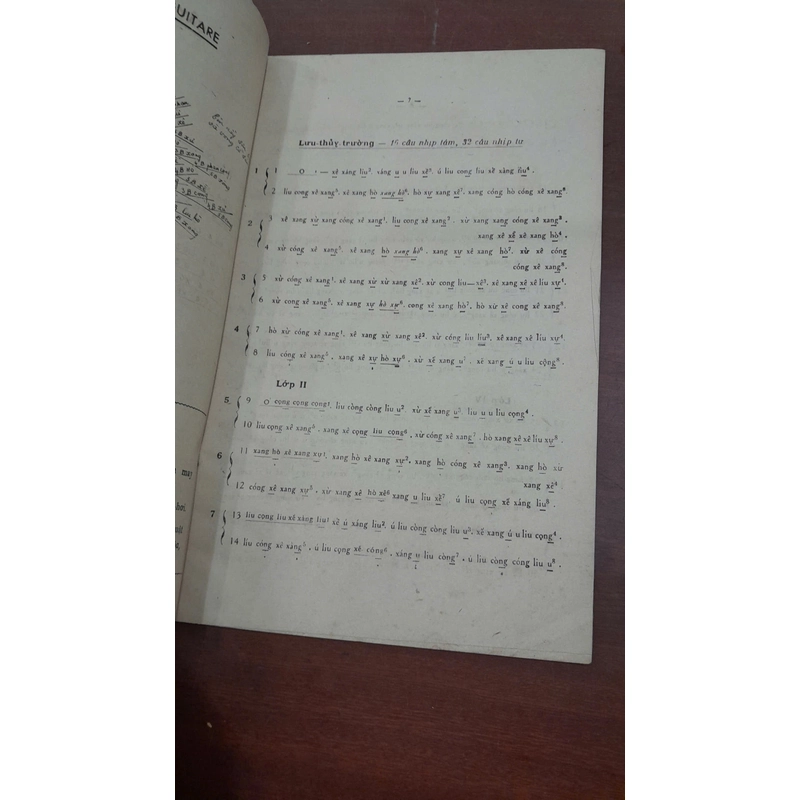 UITARE
— 7 —
Lưu thủy trường — 16 câu nhịp tám, 32 câu nhịp tư
1 { 1 O · — xê xáng liu³, xáng u u liu xê³, ú liu cong liu xê xàng liu⁴.
2 liu cong xê xang⁵, xê xang hò xang hò⁶, hò xự xang xê⁷, xang cóng hò cóng xê xang⁸.
2 { 3 xê xang xừ xang cóng xê xang¹, liu cong xê xang², xừ xang xang cóng xê xang³,
xang xê xê xê xang hò⁴.
4 xừ cóng xê xang⁵, xê xang hò xang hò⁶, xang xự xê xang hò⁷, xừ xê cóng
cóng xê xang⁸.
3 { 5 xừ cóng xê xang¹, xê xang xừ xừ xang xê², xừ cong liu—xê³, xê xang xê xê liu xự⁴.
6 xừ cong xê xang⁵, xê xang xự hò xự⁶, cong xê xang hò⁷, hò xừ xê cong xê xang⁸.
4 { 7 hò xừ cóng xê xang¹, xê xang xừ xang xê², xừ cóng liu liu³, xê xang xê liu xự⁴.
8 liu cóng xê xang⁵, xang xê xự hò xự⁶, xừ xê xang u⁷, xê xang ú u liu cộng⁸.
Lớp II
5 { 9 O cọng cọng cọng¹, liu còng còng liu u², xừ xê xang u³, liu u u liu cọng⁴.
10 liu cọng xê xang⁵, xang xê cọng liu cộng⁶, xừ cóng xê xang⁷, hò xang xê xê liu xự⁸.
6 { 11 xang hò xê xang xự¹, xang hò xê xang xự², xang hò cóng xê xang³, xang hò xừ
xang xê⁴.
12 cóng xê xang xự⁵, xừ xang xê hò xê⁶ xang u liu xê⁷, ú liu cọng xê xáng liu⁸.
7 { 13 liu cọng liu xê xáng liu¹ xê ú xáng liu², ú liu còng còng liu u³, xê xang ú u liu cọng⁴.
14 liu cóng xê xàng⁵, ú liu cọng xê cóng⁶, xáng u liu còng⁷, ú liu còng cóng liu u⁸.
may
hơi